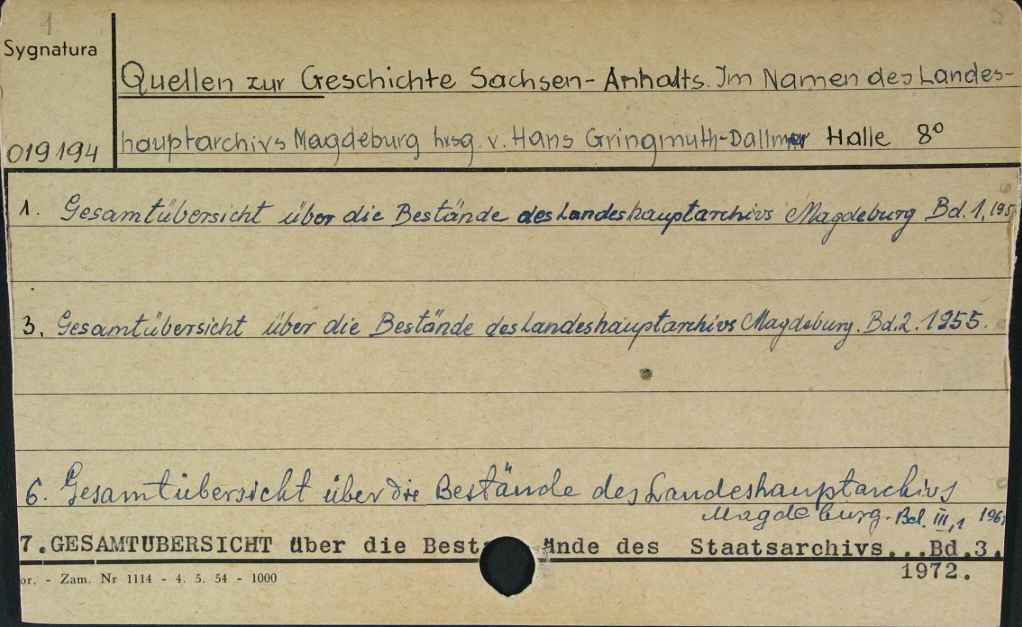 1
Sygnatura
Quellen zur Geschichte Sachsen-Anhalts. Im Namen des Landes-
019194 hauptarchivs Magdeburg hrsg. v. Hans Gringmuth-Dallmer Halle 8°
1. Gesamtübersicht über die Bestände des Landeshauptarchivs Magdeburg Bd. 1, 195
3. Gesamtübersicht über die Bestände des Landeshauptarchivs Magdeburg. Bd. 2. 1955.
6. Gesamtübersicht über die Bestände des Landeshauptarchivs
Magdeburg. Bd. III, 1 196
7. GESAMTUBERSICHT über die Best ände des Staatsarchivs...Bd.3.
1972.
or. - Zam. Nr 1114 - 4. 5. 54 - 1000